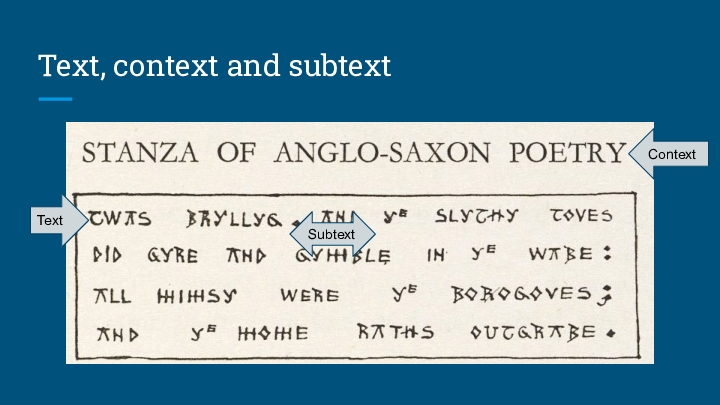 Text, context and subtext
STANZA OF ANGLO-SAXON POETRY
Context
Text
TWAS BRYLLYG , AND Yᴱ SLYTHY TOVES
Subtext
DID GYRE AND GYMBLE IN Yᴱ WABE :
ALL MIMSY WERE Yᴱ BOROGOVES ;
AND Yᴱ MOME RATHS OUTGRABE .